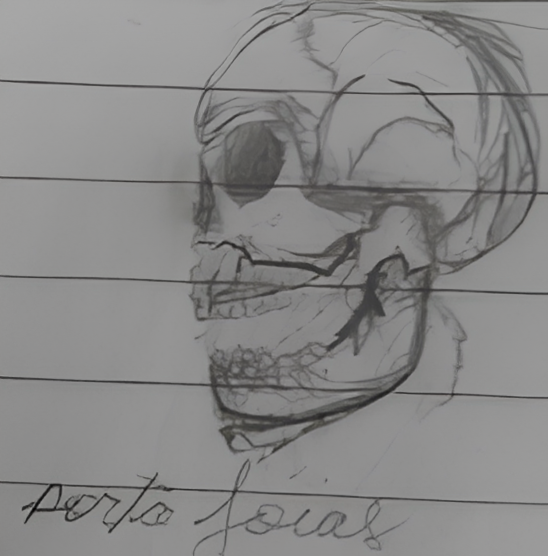 porta joias